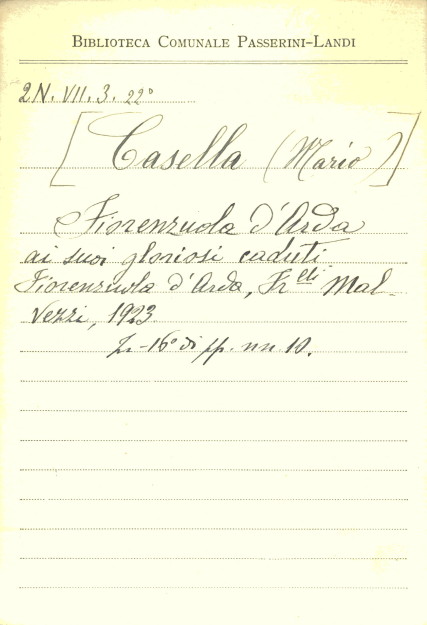 BIBLIOTECA COMUNALE PASSERINI-LANDI
2N. VII. 3. 22°
[Casella (Mario)]
Fiorenzuola d'Arda
ai suoi gloriosi caduti.
Fiorenzuola d'Arda, Fr.elli Mal-
vezzi, 1923
In-16° di pp. nn 10.